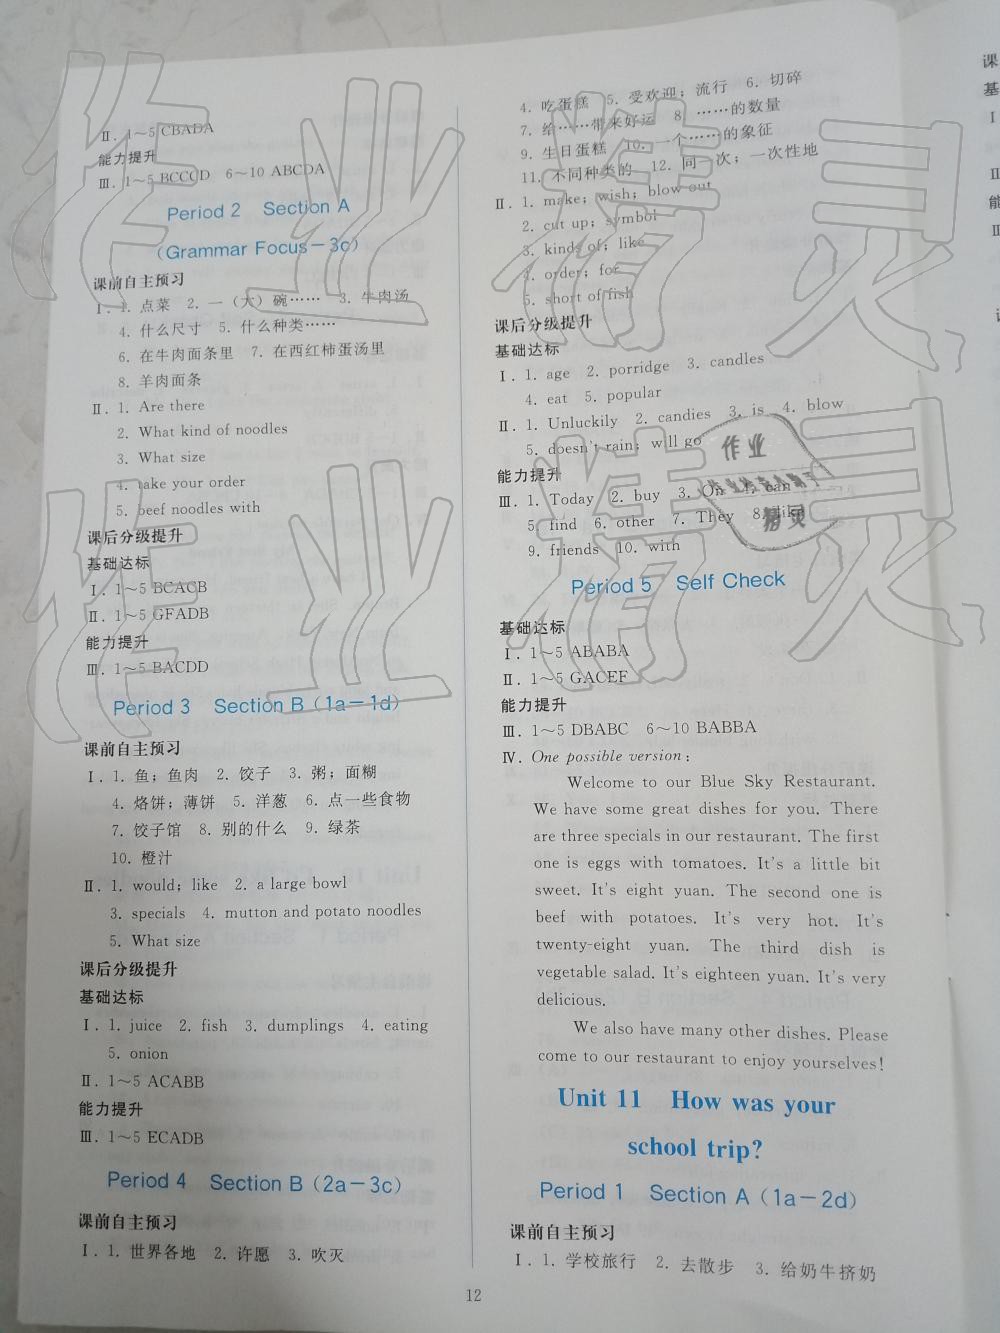 Ⅱ. 1～5 CBADA
能力提升
Ⅲ. 1～5 BCCCD 6～10 ABCDA
Period 2 Section A
(Grammar Focus－3c)
课前自主预习
Ⅰ. 1. 点菜 2. 一（大）碗…… 3. 牛肉汤
4. 什么尺寸 5. 什么种类……
6. 在牛肉面条里 7. 在西红柿蛋汤里
8. 羊肉面条
Ⅱ. 1. Are there
2. What kind of noodles
3. What size
4. take your order
5. beef noodles with
课后分级提升
基础达标
Ⅰ. 1～5 BCACB
Ⅱ. 1～5 GFADB
能力提升
Ⅲ. 1～5 BACDD
Period 3 Section B (1a－1d)
课前自主预习
Ⅰ. 1. 鱼；鱼肉 2. 饺子 3. 粥；面糊
4. 烙饼；薄饼 5. 洋葱 6. 点一些食物
7. 饺子馆 8. 别的什么 9. 绿茶
10. 橙汁
Ⅱ. 1. would; like 2. a large bowl
3. specials 4. mutton and potato noodles
5. What size
课后分级提升
基础达标
Ⅰ. 1. juice 2. fish 3. dumplings 4. eating
5. onion
Ⅱ. 1～5 ACABB
能力提升
Ⅲ. 1～5 ECADB
Period 4 Section B (2a－3c)
课前自主预习
Ⅰ. 1. 世界各地 2. 许愿 3. 吹灭
4. 吃蛋糕 5. 受欢迎；流行 6. 切碎
7. 给……带来好运 8. ……的数量
9. 生日蛋糕 10. 一个……的象征
11. 不同种类的 12. 同一次；一次性地
Ⅱ. 1. make; wish; blow out
2. cut up; symbol
3. kinds of; like
4. order; for
5. short of fish
课后分级提升
基础达标
Ⅰ. 1. age 2. porridge 3. candles
4. eat 5. popular
Ⅱ. 1. Unluckily 2. candies 3. is 4. blow
5. doesn't rain; will go
能力提升
Ⅲ. 1. Today 2. buy 3. On 4. can
5. find 6. other 7. They 8. like
9. friends 10. with
Period 5 Self Check
基础达标
Ⅰ. 1～5 ABABA
Ⅱ. 1～5 GACEF
能力提升
Ⅲ. 1～5 DBABC 6～10 BABBA
Ⅳ. One possible version:
Welcome to our Blue Sky Restaurant.
We have some great dishes for you. There
are three specials in our restaurant. The first
one is eggs with tomatoes. It's a little bit
sweet. It's eight yuan. The second one is
beef with potatoes. It's very hot. It's
twenty-eight yuan. The third dish is
vegetable salad. It's eighteen yuan. It's very
delicious.
We also have many other dishes. Please
come to our restaurant to enjoy yourselves!
Unit 11 How was your
school trip?
Period 1 Section A (1a－2d)
课前自主预习
Ⅰ. 1. 学校旅行 2. 去散步 3. 给奶牛挤奶
12
作业精灵
作业精灵
作业
精灵